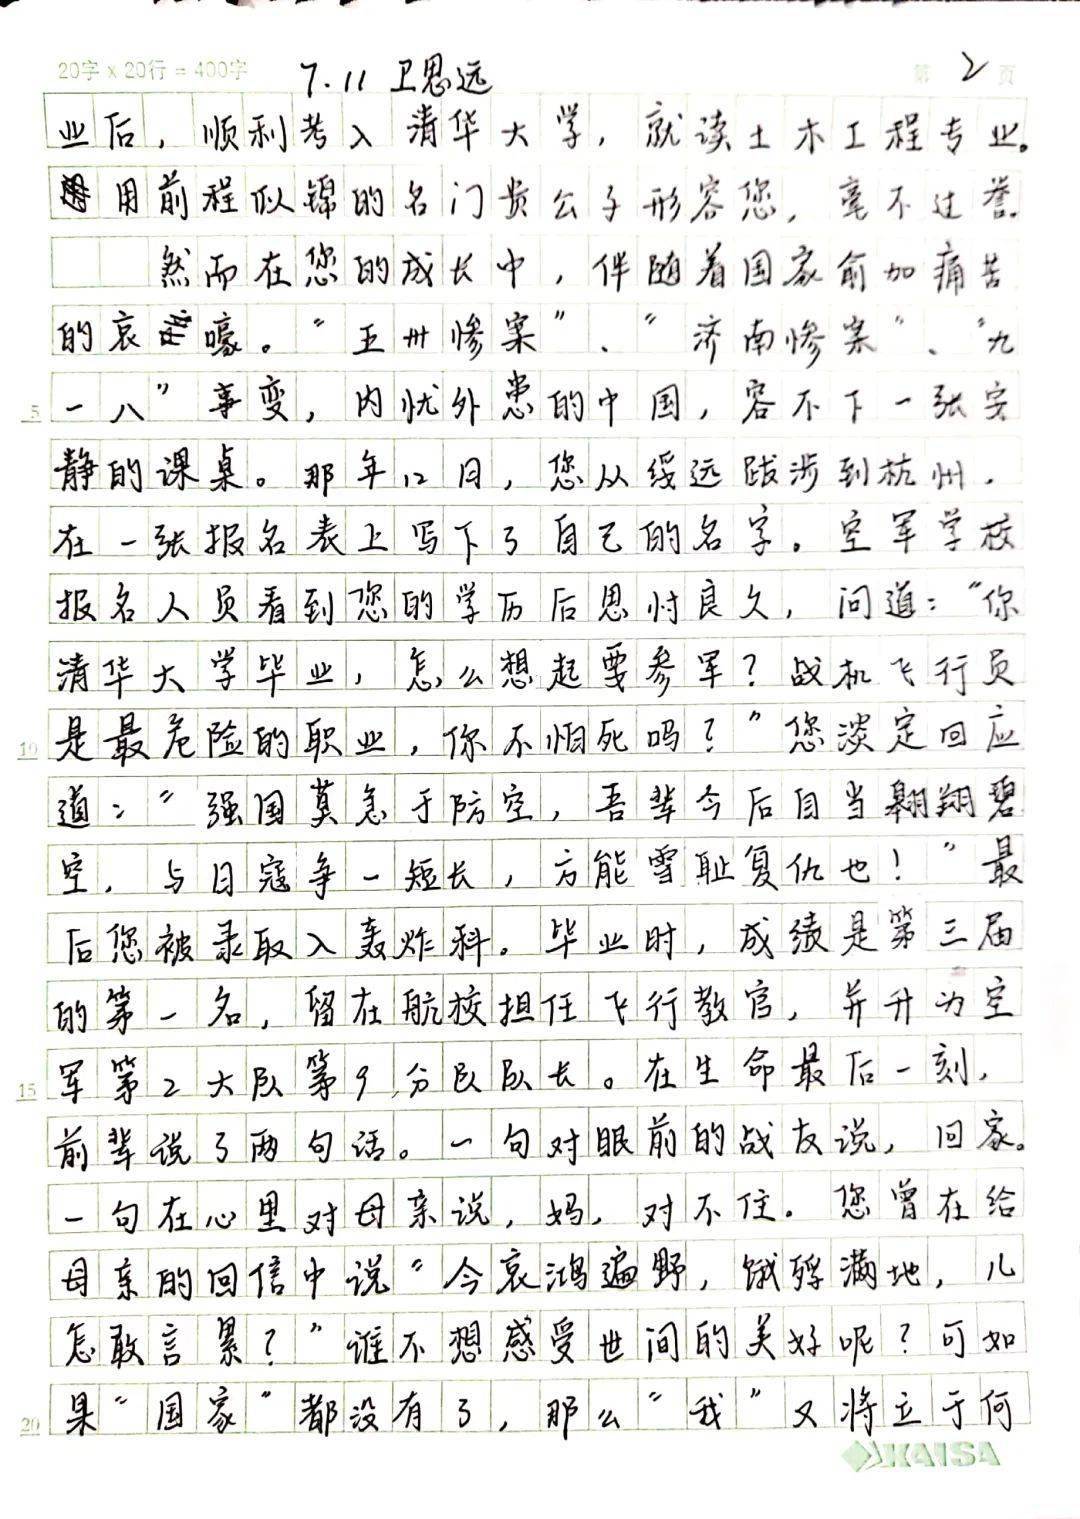 20字×20行=400字 7.11 卫思远 第 2 页
业后，顺利考入清华大学，就读土木工程专业。
用前程似锦的名门贵公子形容您，毫不过誉。
然而在您的成长中，伴随着国家俞加痛苦
的哀嚎。“五卅惨案”、“济南惨案”、“九
5 一八”事变，内忧外患的中国，容不下一张安
静的课桌。那年12月，您从绥远跋涉到杭州，
在一张报名表上写下了自己的名字。空军学校
报名人员看到您的学历后思忖良久，问道：“你
清华大学毕业，怎么想起要参军？战机飞行员
10 是最危险的职业，你不怕死吗？”您淡定回应
道：“强国莫急于防空，吾辈今后自当翱翔碧
空，与日寇争一短长，方能雪耻复仇也！”最
后您被录取入轰炸科。毕业时，成绩是第三届
的第一名，留在航校担任飞行教官，并升为空
15 军第2大队第9分队队长。在生命最后一刻，
前辈说了两句话。一句对眼前的战友说，回家。
一句在心里对母亲说，妈，对不住。您曾在给
母亲的回信中说“今哀鸿遍野，饿殍满地，儿
怎敢言累？”谁不想感受世间的美好呢？可如
20 果“国家”都没有了，那么“我”又将立于何
KAISA